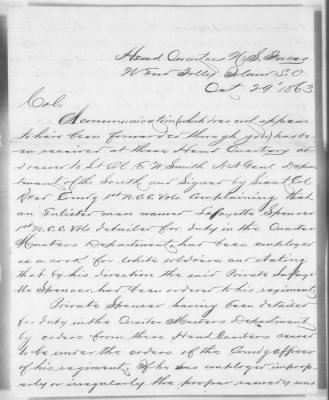 Head Quarters U.S. Forces
West Folly Island S.C
Oct 29" 1863
Col.
A communication (which does not appear
to have been forwarded through you) has be
en received at these Head Quarters ad
dressed to Lt Col E W Smith A A Genl Depar
tment of the South and signed by Lieut Col
Comdg 1st N.C.C. Vols. Complaining that
an Enlisted man named Lafayette Spencer
1st N.C.C. Vols detailed for duty in the Quarter
Masters Department, had been employed
as a cook for white soldiers, and stating
that by his direction the said Private Lafaye
tte Spencer, had been ordered to his regiment,
Private Spencer having been detailed
for duty in the Quarter Masters Department
by orders from these Head Quarters ceased
to be under the orders of the Comdg officer
of his regiment. If he was employed improp
erly or irregularly the proper remedy was